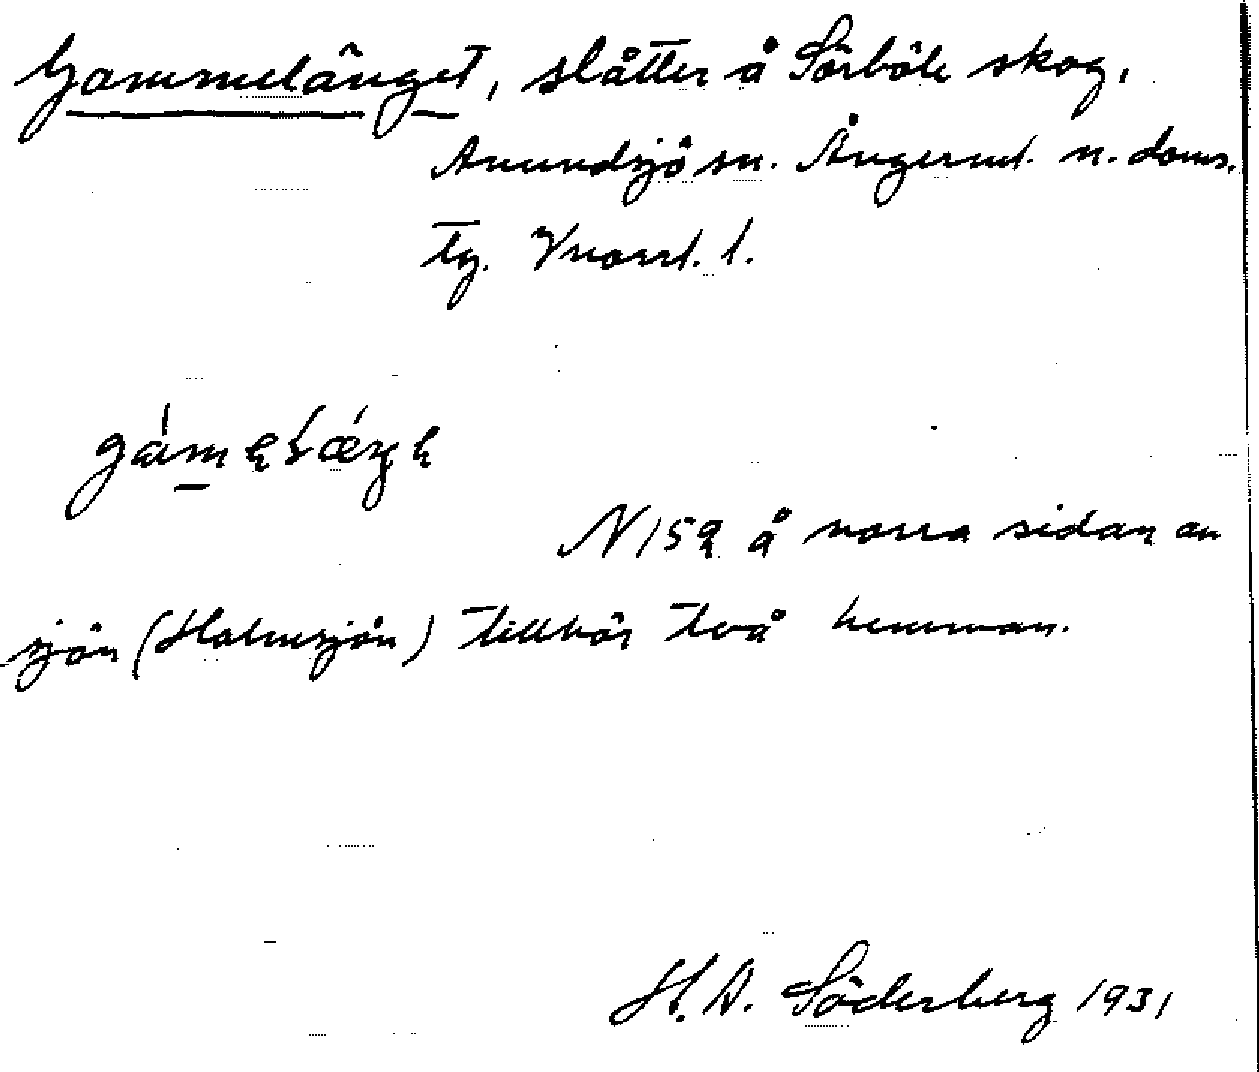 Gammelänget, slåtter å Sörböle skog,
Anundsjö sn. Ångerml. n. doms.
tg. Vnorrl. l.
N 159 å norra sidan av
sjön (Holmsjön) tillhör två hemman.
H. A. Söderberg 1931